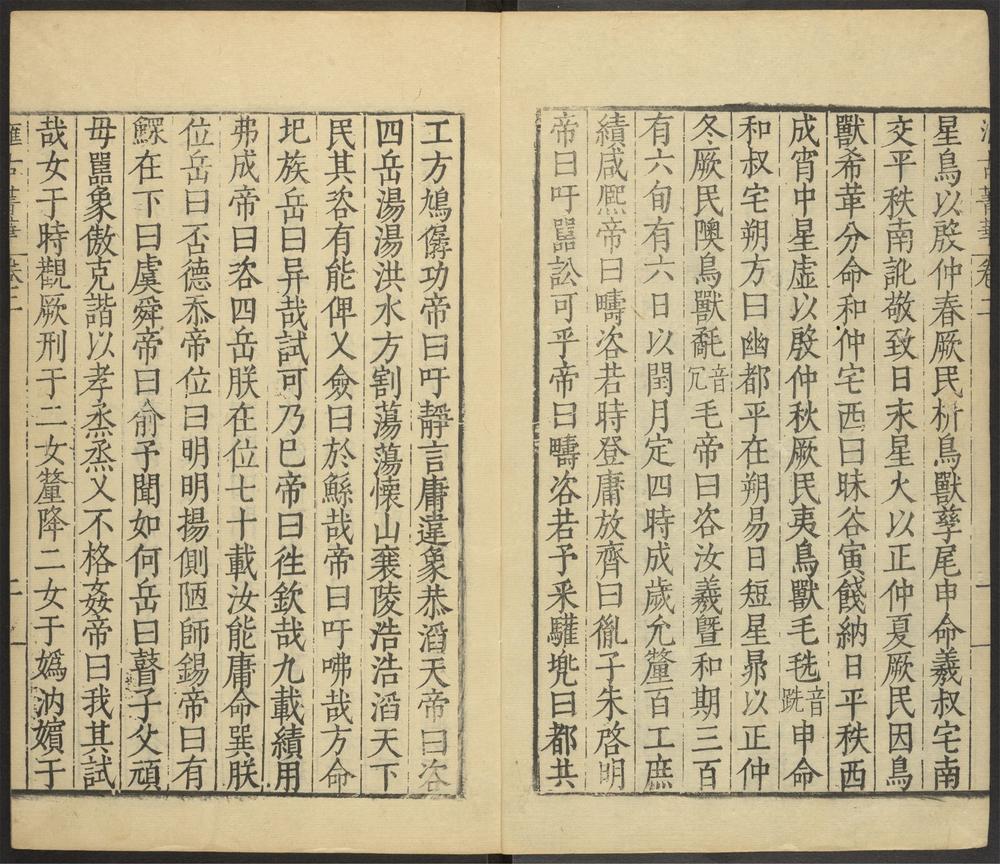 星鳥以殷仲春厥民析鳥獸孳尾申命羲叔宅南
交平秩南訛敬致日永星火以正仲夏厥民因鳥
獸希革分命和仲宅西曰昧谷寅餞納日平秩西
成宵中星虛以殷仲秋厥民夷鳥獸毛毨音跣申命
和叔宅朔方曰幽都平在朔易日短星昴以正仲
冬厥民隩鳥獸氄音冗毛帝曰咨汝羲暨和期三百
有六旬有六日以閏月定四時成歲允釐百工庶
績咸熙帝曰疇咨若時登庸放齊曰胤子朱啓明
帝曰吁嚚訟可乎帝曰疇咨若予采驩兠曰都共
工方鳩僝功帝曰吁靜言庸違象恭滔天帝曰咨
四岳湯湯洪水方割蕩蕩懷山襄陵浩浩滔天下
民其咨有能俾乂僉曰於鯀哉帝曰吁咈哉方命
圮族岳曰异哉試可乃巳帝曰徃欽哉九載績用
弗成帝曰咨四岳朕在位七十載汝能庸命巽朕
位岳曰否德忝帝位曰明明揚側陋師錫帝曰有
鰥在下曰虞舜帝曰俞予聞如何岳曰瞽子父頑
母嚚象傲克諧以孝烝烝乂不格姦帝曰我其試
哉女于時觀厥刑于二女釐降二女于嬀汭嬪于
卷二
二